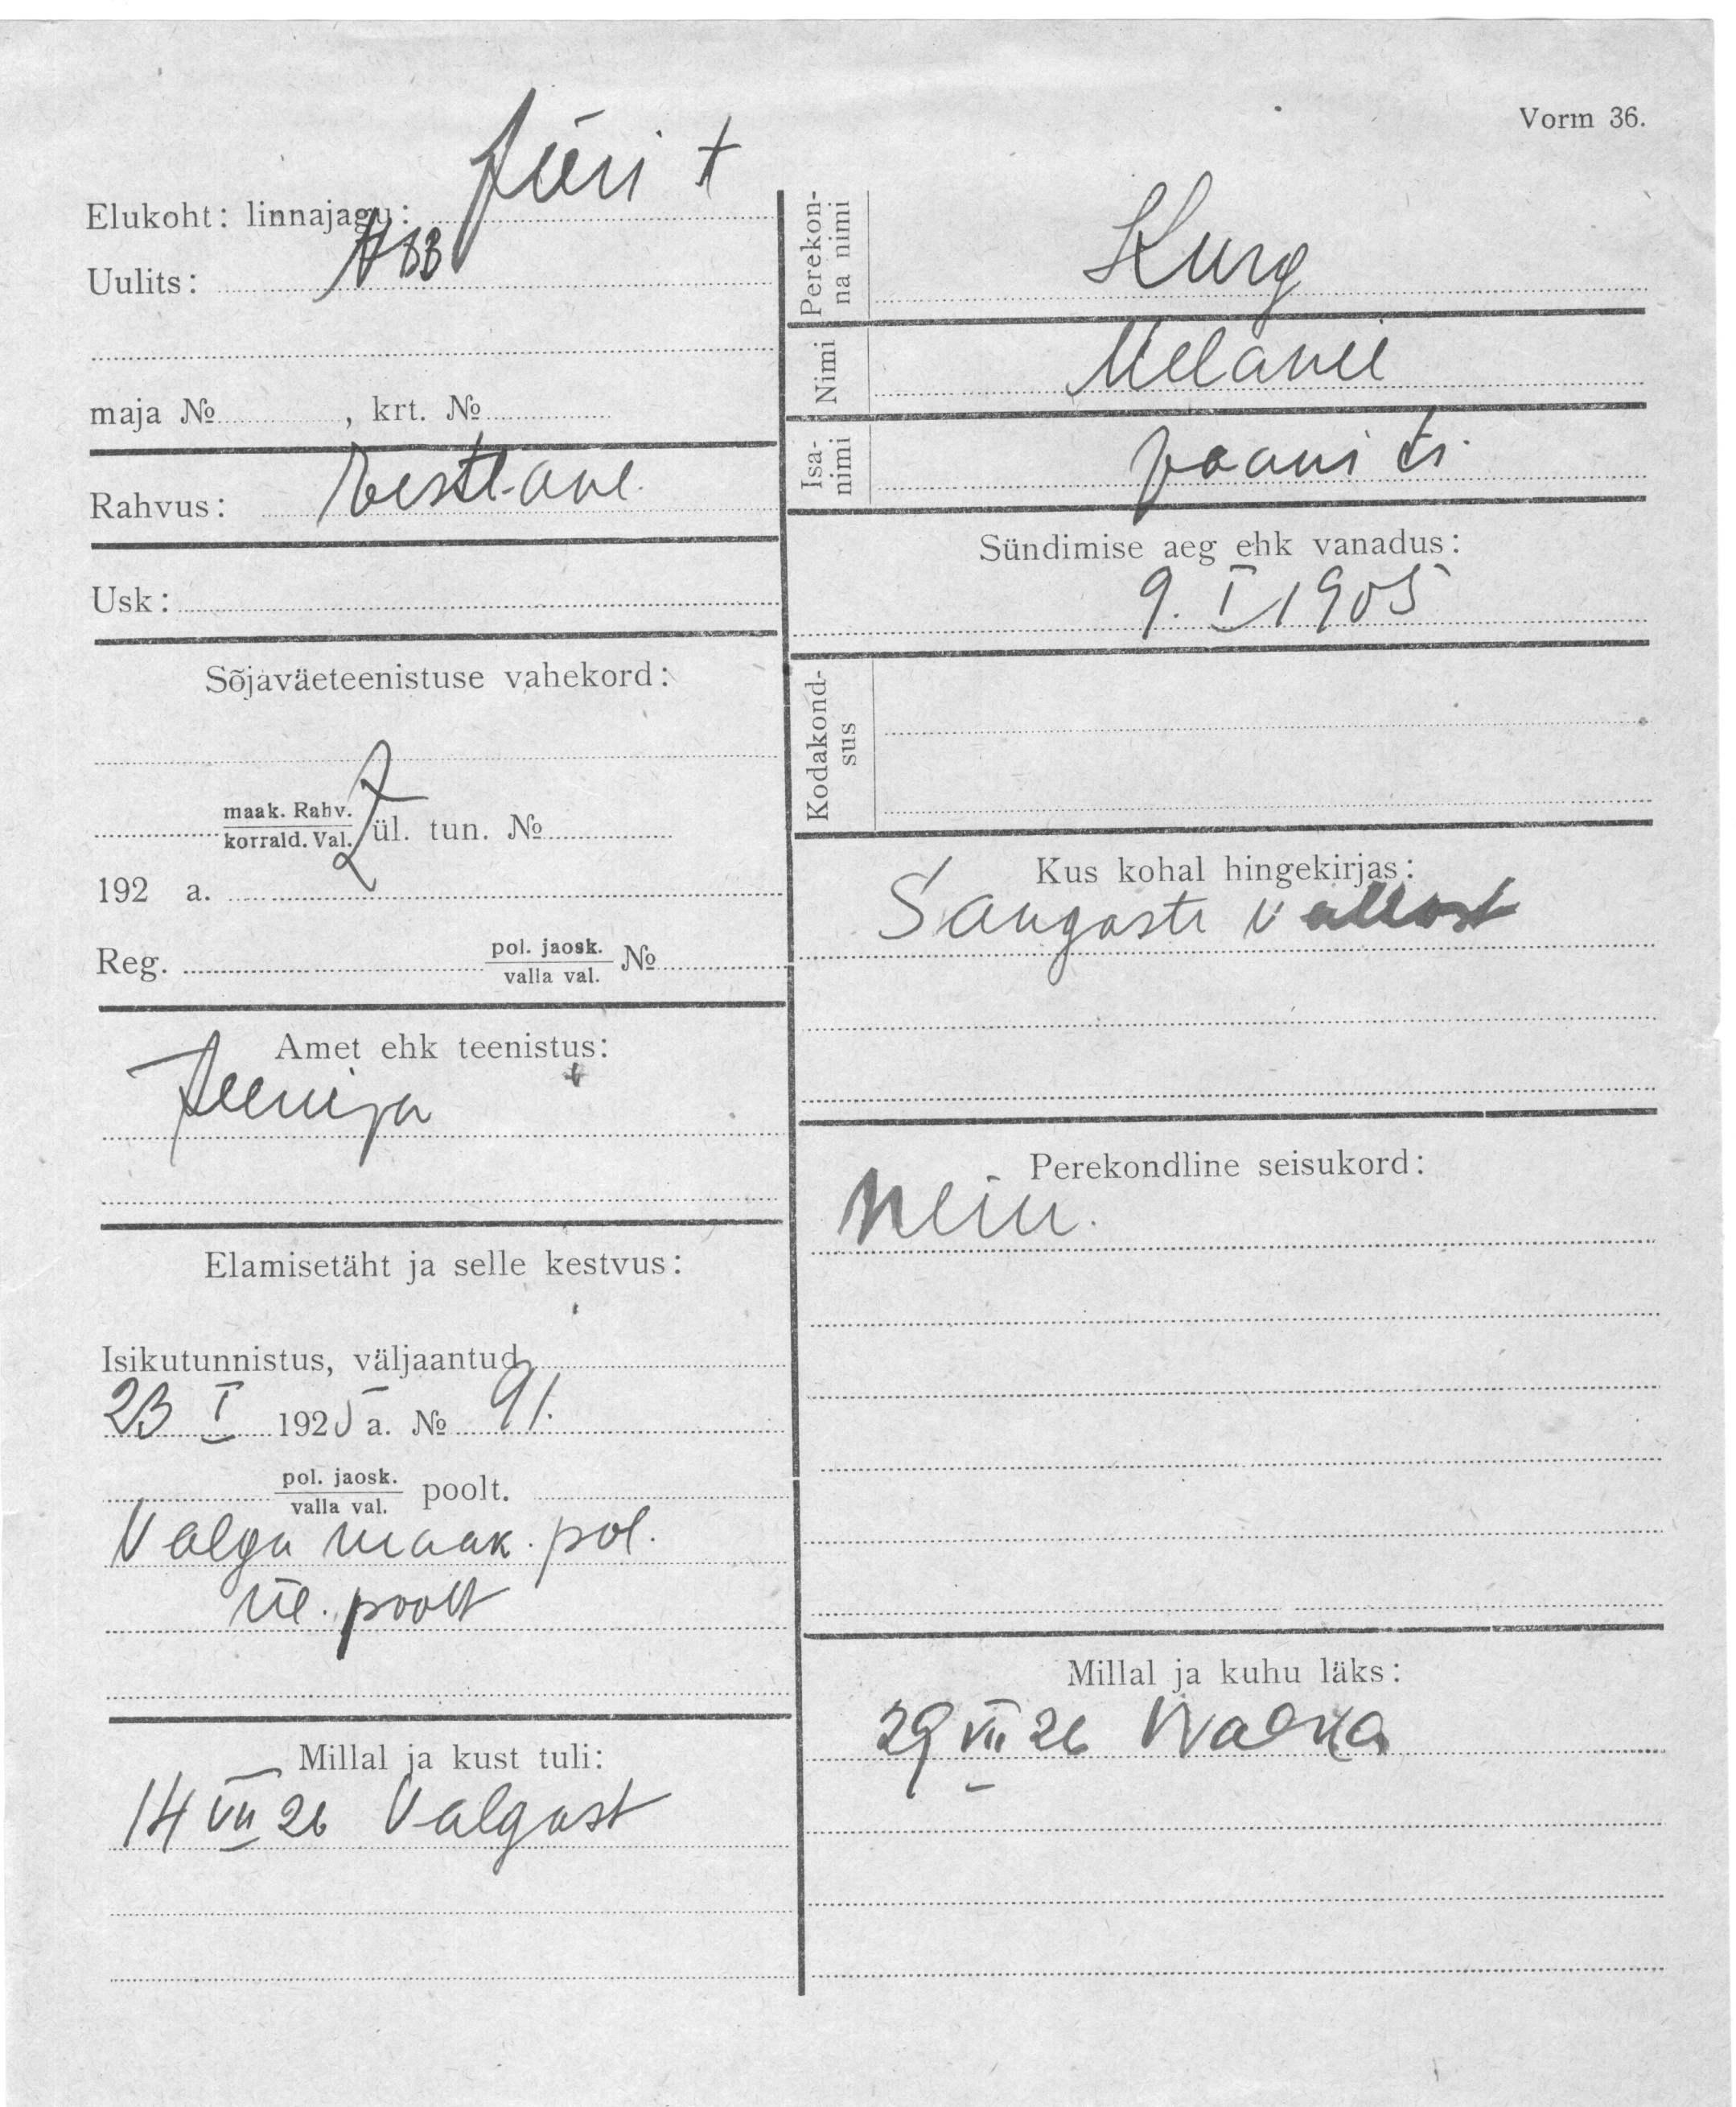 Vorm 36.
Elukoht: linnajagu: Jüri t
Uulits: 
maja № , krt. №
Rahvus: eestlane.
Usk:
Sõjaväeteenistuse vahekord:
maak. Rahv.
korrald. Val. ül. tun. №
192 a.
Reg. pol. jaosk. №
valla val.
Amet ehk teenistus:
Teenija
Elamisetäht ja selle kestvus:
Isikutunnistus, väljaantud
23 I 1925 a. № 91.
pol. jaosk. poolt.
valla val.
Valga maak. pol.
ül. poolt
Millal ja kust tuli:
14 VII 26 Valgast
Perekon-
na nimi
Kurg
Nimi
Melanie
Isa-
nimi
Jaani t.
Sündimise aeg ehk vanadus:
9. I 1905
Kodakond-
sus
Kus kohal hingekirjas:
Sangaste vallast
Perekondline seisukord:
Neiu.
Millal ja kuhu läks:
29 VII 26 Walka